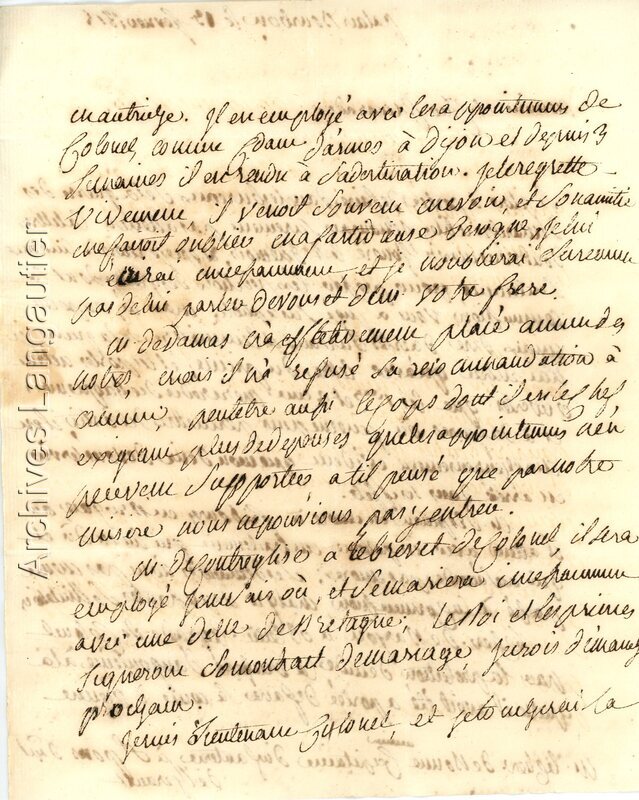 en autriche. Il est employé avec les appointemens de
Colonel comme Cdant d'armes à Dijon et depuis 3
Semaines il est rendu à Sa destination. je le regrette
Vivement, il venoit Souvent me voir, et Son amitié
me faisoit oublier ma fastidieuse besogne. je lui
écrirai incessamment et je n'oublierai Surement
pas de lui parler de vous et de Mr votre frere.
Mr de Damas n'a effectivement placé aucun des
notres, mais il n'a refusé Sa recommandation à
aucun, peutêtre aussi le corps dont il est le chef
exigeant plus de depenses que les appointemens n'en
peuvent Supporter a til pensé que par notre
misere nous ne pouvions pas y entrer.
Mr de Contreglise a le brevet de Colonel, il sera
employé je ne sais où, et Se mariera incessamment
avec une Delle de Bretagne, le Roi et les princes
Signeront Son contrat de mariage, je crois dimanche
prochain.
je suis Lieutenant Colonel, et je toucherai la
Archives Langautier